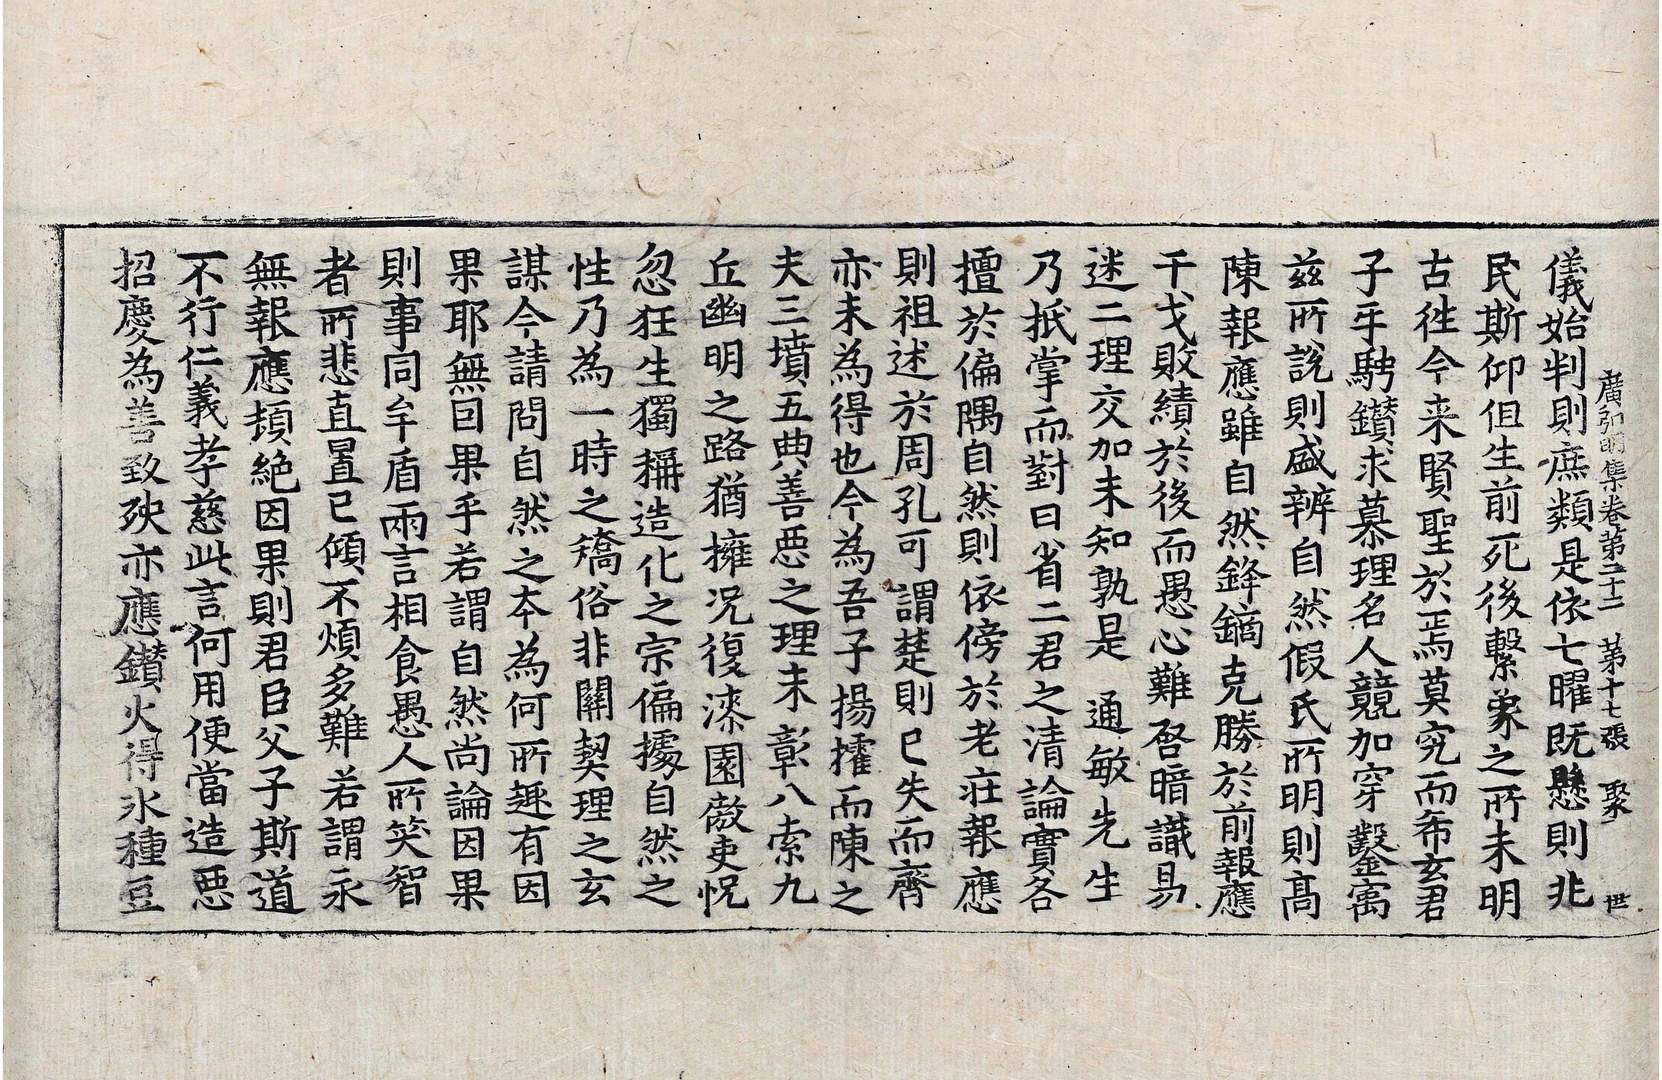 廣弘明集卷第二十二 第十七張 聚 世
儀始判則庶類是依七曜既懸則兆
民斯仰但生前死後繫象之所未明
古徃今来賢聖於焉莫究而希玄君
子乎騁鑽求慕理名人競加穿鑿寓
茲所說則盛辨自然假氏所明則高
陳報應雖自然鋒鏑克勝於前報應
干戈敗績於後而愚心難啓暗識易
迷二理交加未知孰是 通敏先生
乃抵掌而對曰省二君之清論實各
擅於偏隅自然則依傍於老莊報應
則祖述於周孔可謂楚則已失而齊
亦未為得也今為吾子揚搉而陳之
夫三墳五典善惡之理未彰八索九
丘幽明之路猶擁况復漆園傲吏怳
忽狂生獨稱造化之宗偏據自然之
性乃為一時之矯俗非關契理之玄
謀今請問自然之本為何所趣有因
果耶無因果乎若謂自然尚論因果
則事同牟盾兩言相食愚人所笑智
者所悲直置已傾不煩多難若謂永
無報應頓絕因果則君臣父子斯道
不行仁義孝慈此言何用便當造惡
招慶為善致殃亦應鑽火得氷種豆